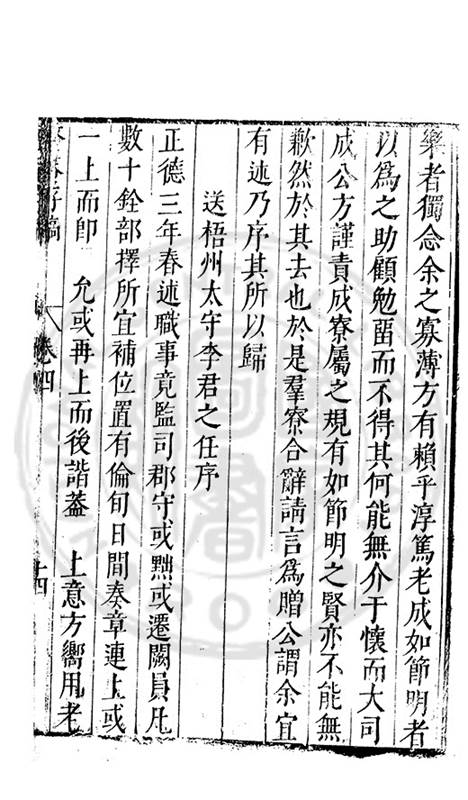 樂者獨念余之寡薄方有賴乎淳篤老成如節明者
以為之助顧勉畱而不得其何能無介于懷而大司
成公方謹責成寮屬之規有如節明之賢亦不能無
歉然於其去也於是羣寮合辭請言為贈公謂余宜
有述乃序其所以歸
送梧州太守李君之任序
正德三年春述職事竟監司郡守或黜或遷闕員凡
數十銓部擇所宜補位置有倫旬日間奏章連上或
一上而即 允或再上而後諧葢 上意方嚮用老
卷四
十四